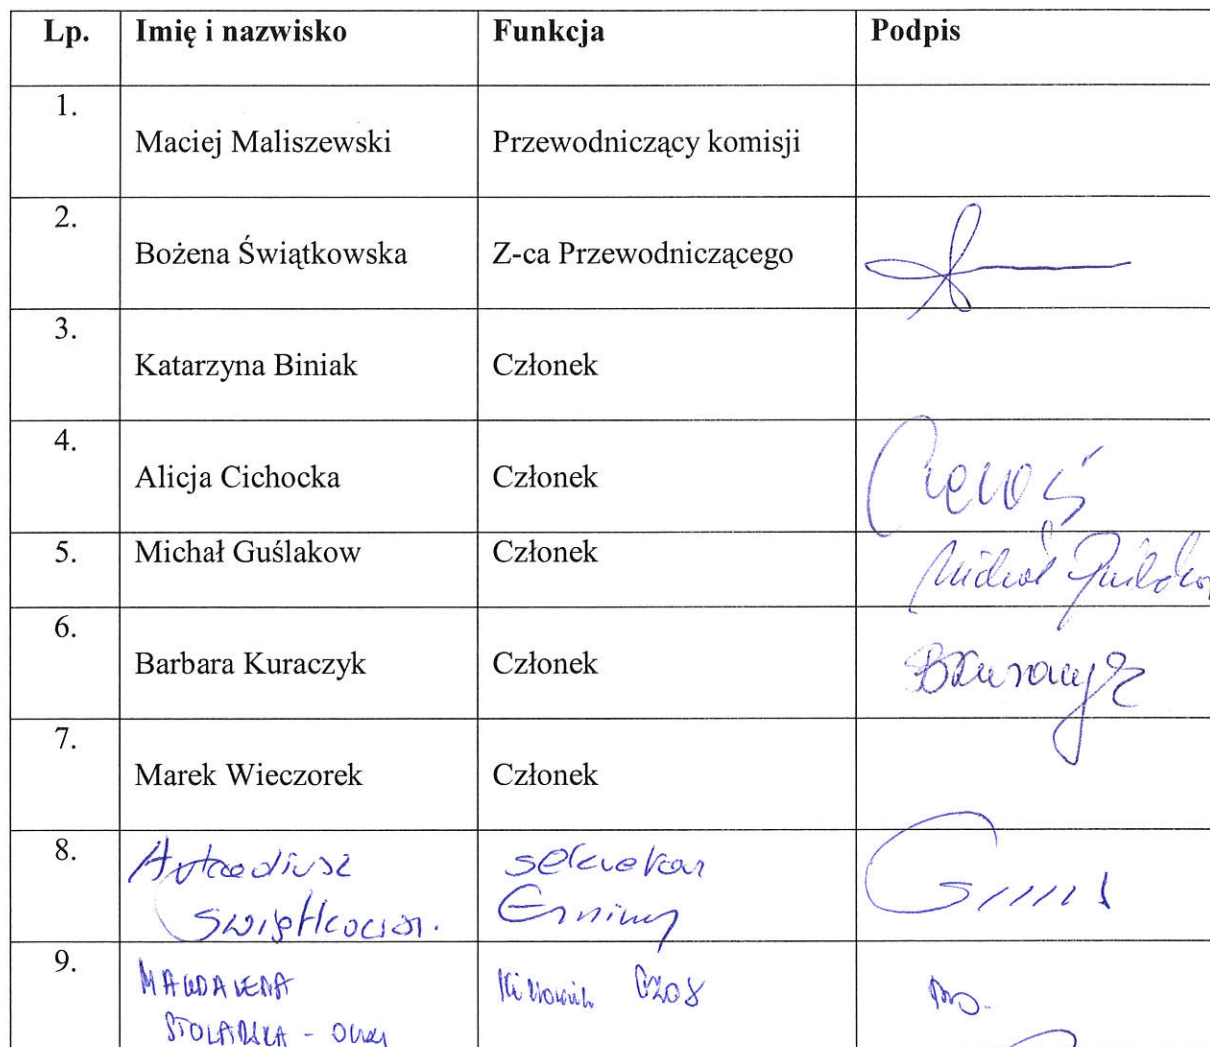 Lp. Imię i nazwisko Funkcja Podpis
1.
Maciej Maliszewski Przewodniczący komisji
2.
Bożena Świątkowska Z-ca Przewodniczącego
3.
Katarzyna Biniak Członek
4.
Alicja Cichocka Członek
5. Michał Guślakow Członek Michał
6.
Barbara Kuraczyk Członek
7.
Marek Wieczorek Członek
8. Arkadiusz sekretarz
Gminy
9. MAGDALENA Kierownik
STOLARSKA -